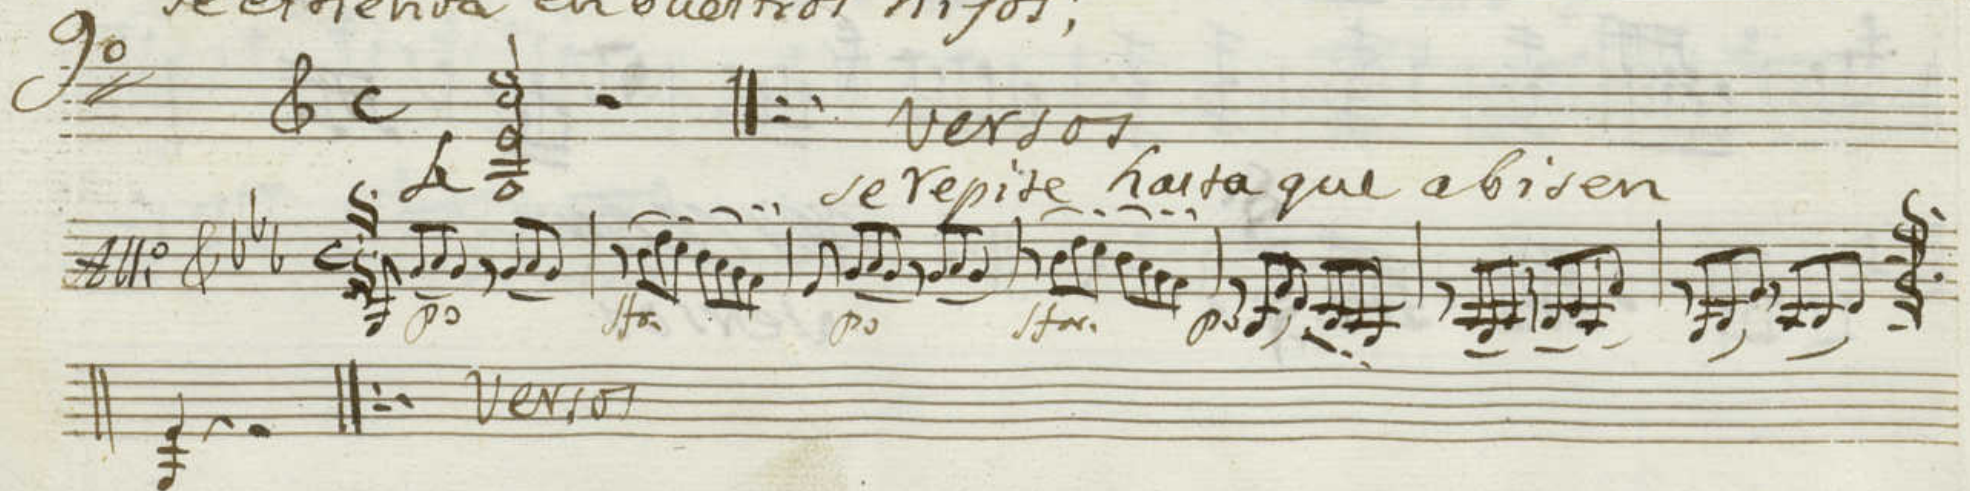 se estienda en buestros hijos;
9º
Versos
se repite hasta que abisen
All.º
pº sfor. pº sfor. pº
Versos